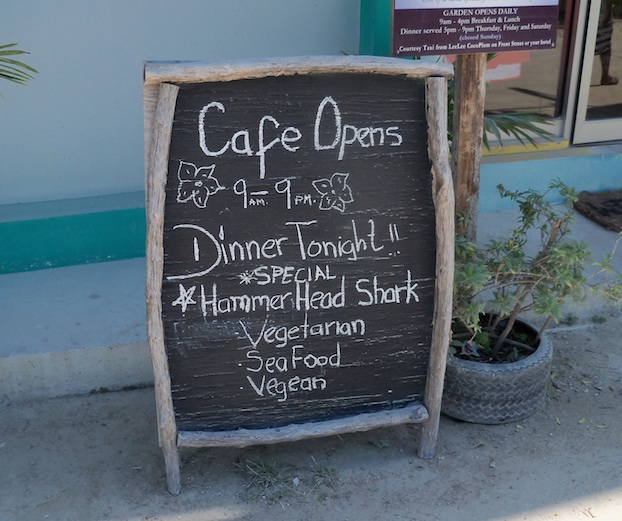 GARDEN OPENS DAILY
9am - 4pm Breakfast & Lunch
Dinner served 5pm - 9pm Thursday, Friday and Saturday
(closed Sunday)
*Courtesy Taxi from LeeLee CocoPlum on Front Street or your hotel
Cafe Opens
9 AM. - 9 PM.
Dinner Tonight!!
*SPECIAL
Hammer Head Shark
Vegetarian
SeaFood
Vegean